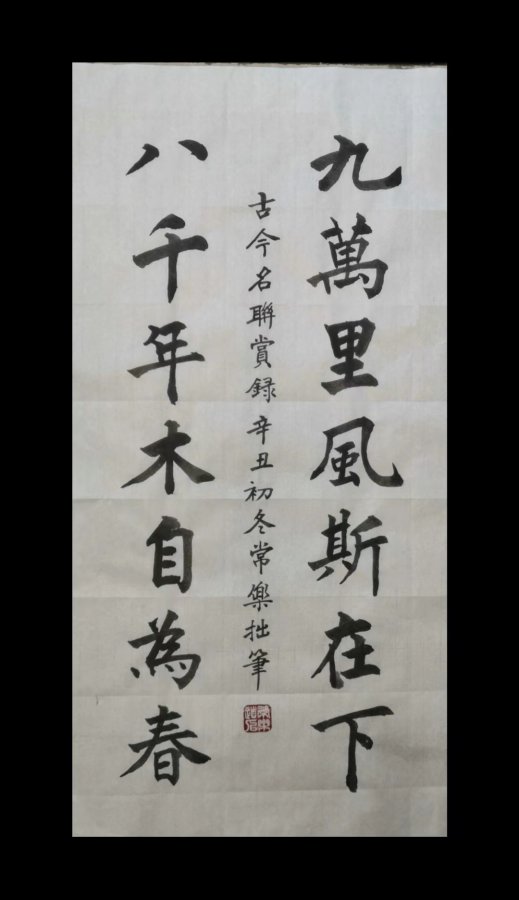 九萬里風斯在下
古今名聯賞録辛丑初冬常樂拙筆
八千年木自為春